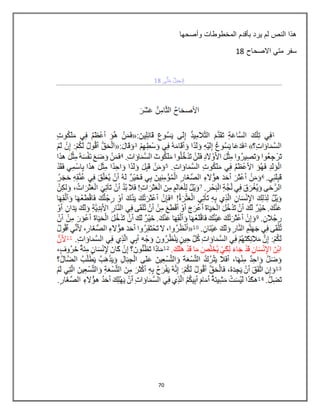 هذا النص لم يرد بأقدم المخطوطات وأصحها
سفر متى الاصحاح 18
إِنْجِيلُ مَتَّى 18
الأصحَاحُ الثَّامِنُ عَشَرَ
1فِي تِلْكَ السَّاعَةِ تَقَدَّمَ التَّلاَمِيذُ إِلَى يَسُوعَ قَائِلِينَ:«فَمَنْ هُوَ أَعْظَمُ فِي مَلَكُوتِ
السَّمَاوَاتِ؟» 2فَدَعَا يَسُوعُ إِلَيْهِ وَلَدًا وَأَقَامَهُ فِي وَسْطِهِمْ 3وَقَالَ:«اَلْحَقَّ أَقُولُ لَكُمْ: إِنْ لَمْ
تَرْجِعُوا وَتَصِيرُوا مِثْلَ الأَوْلاَدِ فَلَنْ تَدْخُلُوا مَلَكُوتَ السَّمَاوَاتِ. 4فَمَنْ وَضَعَ نَفْسَهُ مِثْلَ هذَا
الْوَلَدِ فَهُوَ الأَعْظَمُ فِي مَلَكُوتِ السَّمَاوَاتِ. 5وَمَنْ قَبِلَ وَلَدًا وَاحِدًا مِثْلَ هذَا بِاسْمِي فَقَدْ
قَبِلَنِي. 6وَمَنْ أَعْثَرَ أَحَدَ هؤُلاَءِ الصِّغَارِ الْمُؤْمِنِينَ بِي فَخَيْرٌ لَهُ أَنْ يُعَلَّقَ فِي عُنُقِهِ حَجَرُ
الرَّحَى وَيُغْرَقَ فِي لُجَّةِ الْبَحْرِ. 7وَيْلٌ لِلْعَالَمِ مِنَ الْعَثَرَاتِ! فَلاَ بُدَّ أَنْ تَأْتِيَ الْعَثَرَاتُ، وَلكِنْ
وَيْلٌ لِذلِكَ الإِنْسَانِ الَّذِي بِهِ تَأْتِي الْعَثْرَةُ! 8فَإِنْ أَعْثَرَتْكَ يَدُكَ أَوْ رِجْلُكَ فَاقْطَعْهَا وَأَلْقِهَا
عَنْكَ. خَيْرٌ لَكَ أَنْ تَدْخُلَ الْحَيَاةَ أَعْرَجَ أَوْ أَقْطَعَ مِنْ أَنْ تُلْقَى فِي النَّارِ الأَبَدِيَّةِ وَلَكَ يَدَانِ أَوْ
رِجْلاَنِ. 9وَإِنْ أَعْثَرَتْكَ عَيْنُكَ فَاقْلَعْهَا وَأَلْقِهَا عَنْكَ. خَيْرٌ لَكَ أَنْ تَدْخُلَ الْحَيَاةَ أَعْوَرَ مِنْ أَنْ
تُلْقَى فِي جَهَنَّمِ النَّارِ وَلَكَ عَيْنَانِ. 10«اُنْظُرُوا، لاَ تَحْتَقِرُوا أَحَدَ هؤُلاَءِ الصِّغَارِ، لأَنِّي أَقُولُ
لَكُمْ: إِنَّ مَلاَئِكَتَهُمْ فِي السَّمَاوَاتِ كُلَّ حِينٍ يَنْظُرُونَ وَجْهَ أَبِي الَّذِي فِي السَّمَاوَاتِ. 11لأَنَّ
ابْنَ الإِنْسَانِ قَدْ جَاءَ لِكَيْ يُخَلِّصَ مَا قَدْ هَلَكَ. 12مَاذَا تَظُنُّونَ؟ إِنْ كَانَ لإِنْسَانٍ مِئَةُ خَرُوفٍ،
وَضَلَّ وَاحِدٌ مِنْهَا، أَفَلاَ يَتْرُكُ التِّسْعَةَ وَالتِّسْعِينَ عَلَى الْجِبَالِ وَيَذْهَبُ يَطْلُبُ الضَّالَّ؟
13وَإِنِ اتَّفَقَ أَنْ يَجِدَهُ، فَالْحَقَّ أَقُولُ لَكُمْ: إِنَّهُ يَفْرَحُ بِهِ أَكْثَرَ مِنَ التِّسْعَةِ وَالتِّسْعِينَ الَّتِي لَمْ
تَضِلَّ. 14هكَذَا لَيْسَتْ مَشِيئَةً أَمَامَ أَبِيكُمُ الَّذِي فِي السَّمَاوَاتِ أَنْ يَهْلِكَ أَحَدُ هؤُلاَءِ الصِّغَارِ.
70